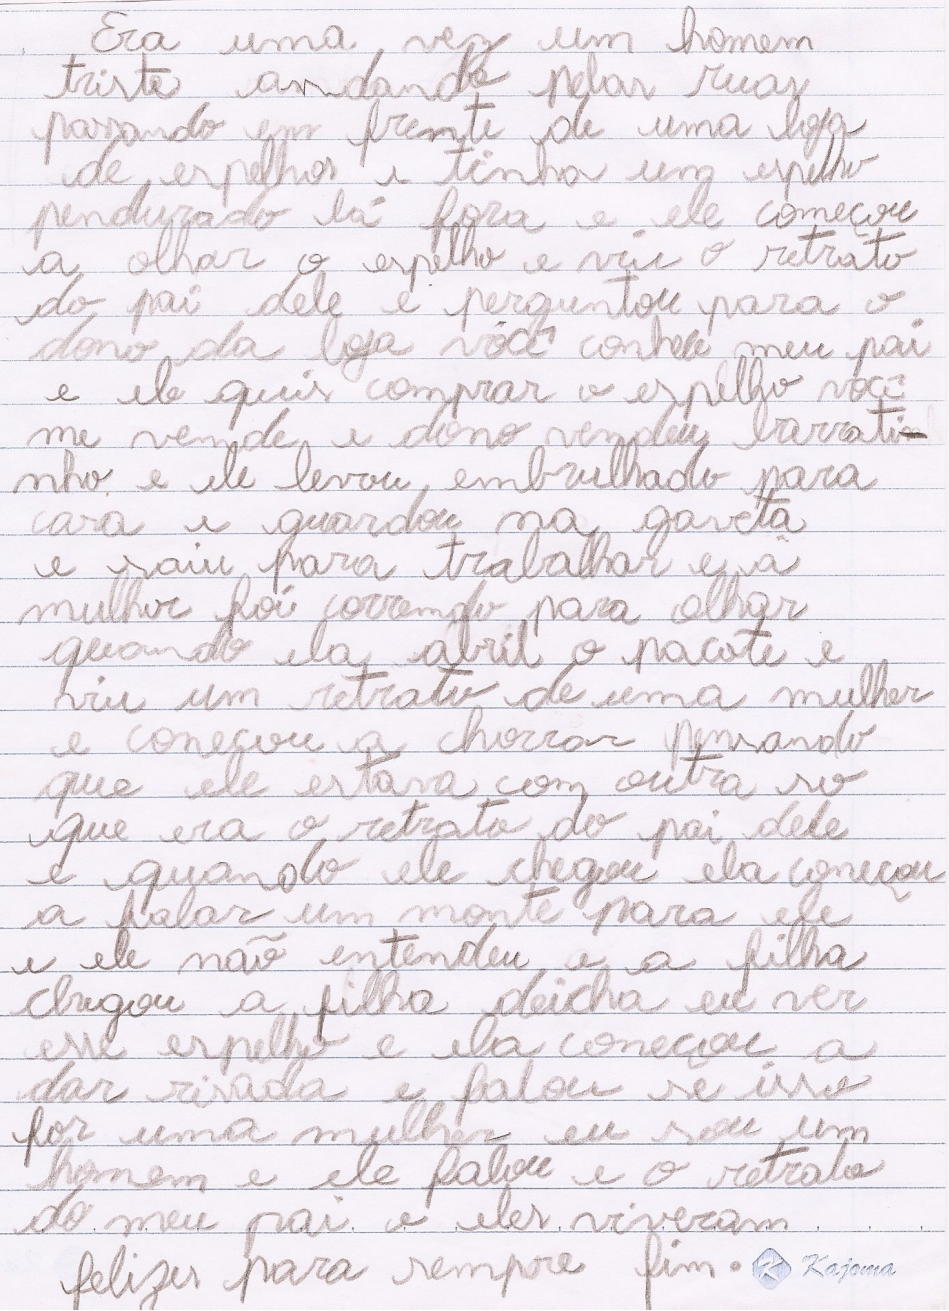 Era uma vez um homem
triste andando pelas ruas
passando em frente de uma loja
de espelhos e tinha um espelho
pendurado lá fora e ele começou
a olhar o espelho e viu o retrato
do pai dele e perguntou para o
dono da loja você conhece meu pai
e ele quis comprar o espelho você
me vende, e dono vendeu barrati-
nho e ele levou embrulhado para
casa e guardou na gaveta
e saiu para trabalhar e a
mulher foi correndo para olhar
quando ela abril o pacote e
viu um retrato de uma mulher
e começou a chorrar pensando
que ele estava com outra so
que era o retrato do pai dele
e quando ele chegou ela começou
a falar um monte para ele
e ele não entendeu e a filha
chegou a filha deicha eu ver
esse espelho e ela começou a
dar risada e falou se isso
for uma mulher eu sou um
homem e ele falou e o retrato
do meu pai e eles viveram
felizes para sempre fim.
Kajoma